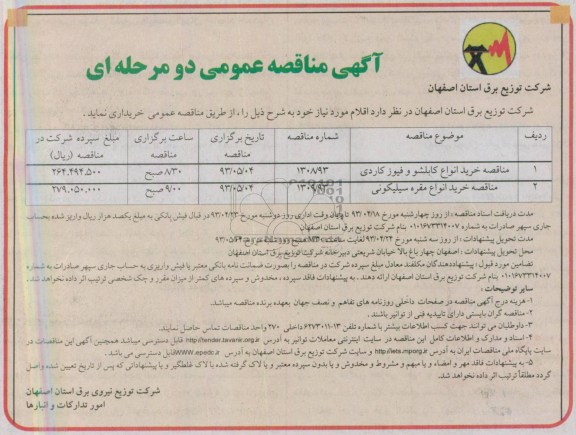 آگهی مناقصه عمومی دو مرحله ای
شرکت توزیع برق استان اصفهان
شرکت توزیع برق استان اصفهان در نظر دارد اقلام مورد نیاز خود به شرح ذیل را، از طریق مناقصه عمومی خریداری نماید.
ردیف موضوع مناقصه شماره مناقصه تاریخ برگزاری مناقصه ساعت برگزاری مناقصه مبلغ سپرده شرکت در مناقصه (ریال)
۱ مناقصه خرید انواع کابلشو و فیوز کاردی ۱۳۰۸/۹۳ ۹۳/۰۵/۰۴ ۸/۳۰ صبح ۲۶۴،۴۹۴،۵۰۰
۲ مناقصه خرید انواع مقره سیلیکونی ۱۳۰۹/۹۳ ۹۳/۰۵/۰۴ ۹/۰۰ صبح ۲۷۹،۰۵۰،۰۰۰
مدت دریافت اسناد مناقصه : از روز چهارشنبه مورخ ۹۳/۰۴/۱۸ تا پایان وقت اداری روز دوشنبه مورخ ۹۳/۰۴/۲۳ در قبال فیش بانکی به مبلغ یکصد هزار ریال واریز شده بحساب
جاری سپهر صادرات به شماره ۰۱۰۱۶۷۳۳۱۴۰۰۷ بنام شرکت توزیع برق استان اصفهان
مدت تحویل پیشنهادات : از روز سه شنبه مورخ ۹۳/۰۴/۲۴ لغایت ساعت
محل تحویل پیشنهادات : اصفهان چهار باغ بالا خیابان شریعتی دبیرخانه شرکت توزیع برق استان اصفهان
تضامین مورد قبول : پیشنهاددهندگان مکلفند معادل مبلغ سپرده شرکت در مناقصه را بصورت ضمانت نامه بانکی معتبر یا فیش واریزی به حساب جاری سپهر صادرات به شماره
۰۱۰۱۶۷۳۳۱۴۰۰۷ بنام شرکت توزیع برق استان اصفهان ارائه دهند . به پیشنهادات فاقد سپرده ، مخدوش و سپرده های کمتر از میزان مقرر و چک شخصی ترتیب اثر داده نخواهد شد.
سایر توضیحات :
۱- هزینه درج آگهی مناقصه در صفحات داخلی روزنامه های تفاهم و نصف جهان بعهده برنده مناقصه میباشد.
۲- مناقصه گران بایستی دارای تاییدیه فنی از توانیر باشند .
۳- داوطلبان می توانند جهت کسب اطلاعات بیشتر با شماره تلفن ۱۳-۶۲۷۳۰۱۱ داخلی ۲۷۰ واحد مناقصات تماس حاصل نمایند.
۴- اسناد و مدارک و اطلاعات کامل این مناقصه در سایت اینترنتی معاملات توانیر به آدرس http://tender.tavanir.org.ir قابل دسترسی میباشد همچنین آگهی این مناقصات در
سایت پایگاه ملی مناقصات ایران به آدرس http://iets.mporg.ir و سایت شرکت توزیع برق استان اصفهان به آدرس WWW.epedc.ir قابل دسترسی می باشد .
۵- به پیشنهادات فاقد مهر و امضاء و یا مبهم و مشروط و مخدوش و یا بدون سپرده معتبر و یا لاک گرفته شده با لاک غلطگیر و یا پیشنهاداتی که پس از تاریخ تعیین شده واصل
گردد مطلقاً ترتیب اثر داده نخواهد شد.
شرکت توزیع نیروی برق استان اصفهان
امور تدارکات و انبارها